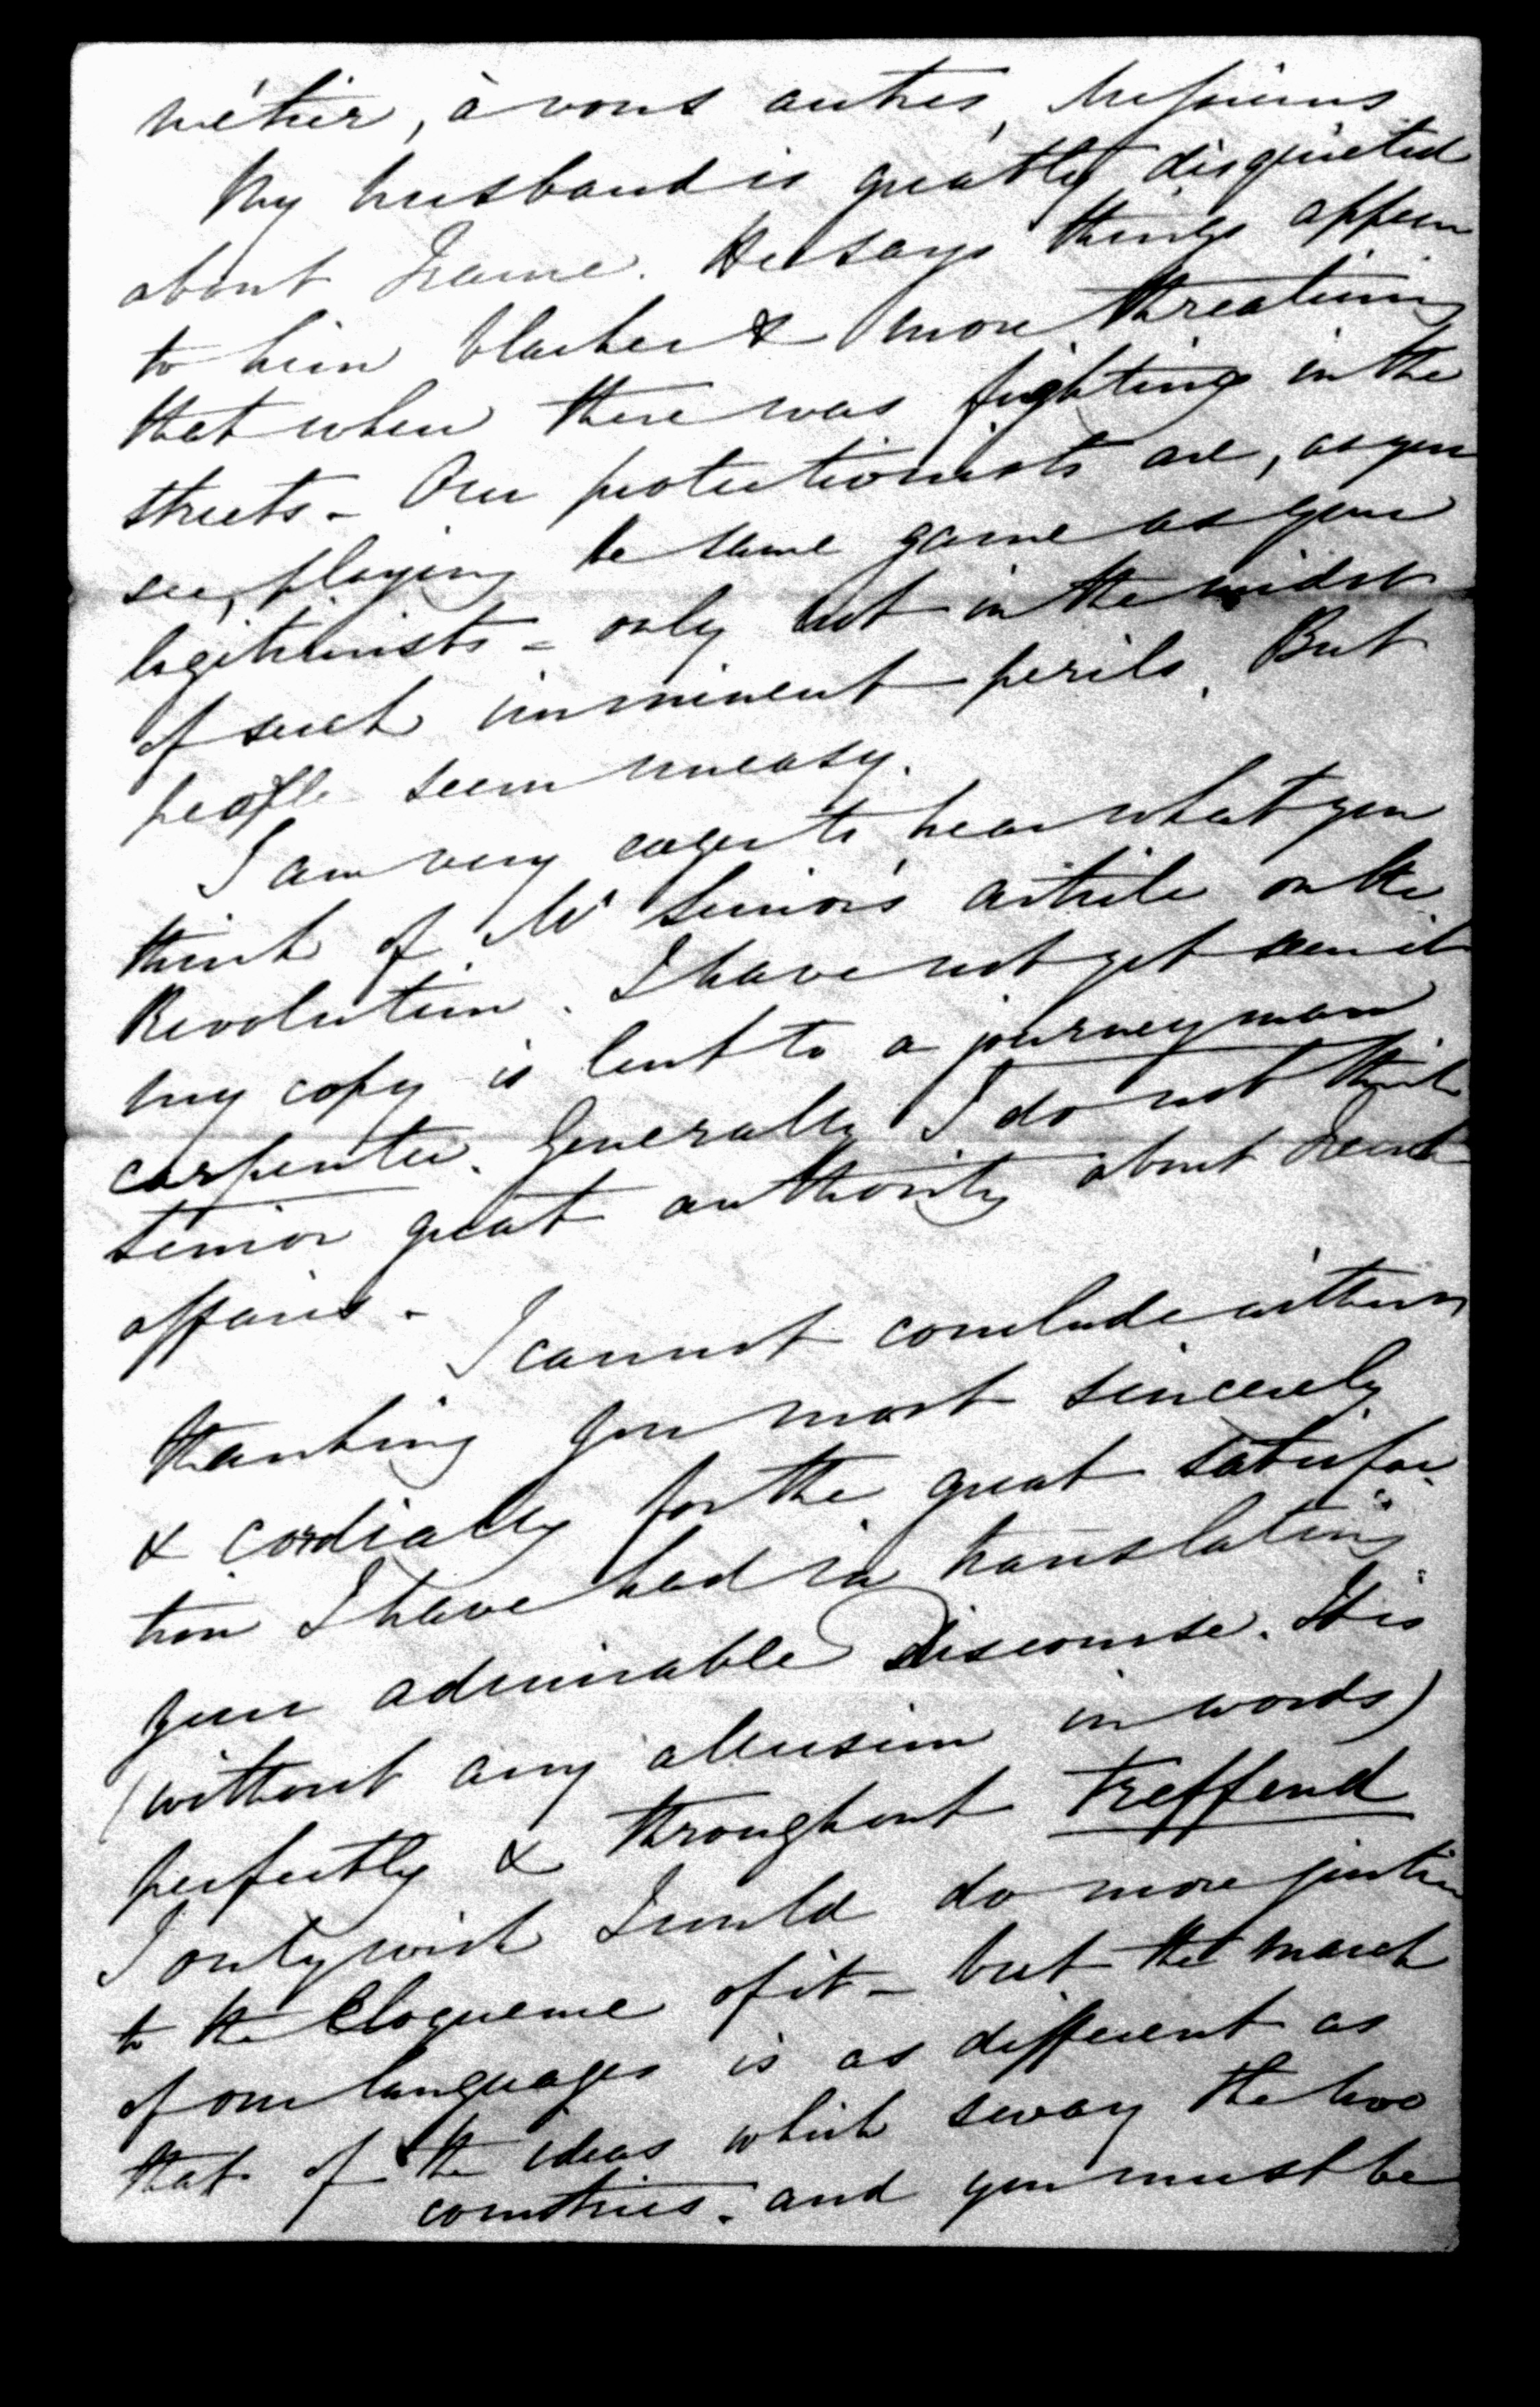 métier, à vous autres, Messieurs
My husband is greatly disquieted
about France. He says things appear
to him blacker & more threatening
that when there was fighting in the
streets - Our protectionists are, as you
see, playing the same game as your
legitimists - only not in the midst
of such imminent perils. But
people seem uneasy.
I am very eager to hear what you
think of Mr Senior's article on the
Revolution. I have not yet seen it
my copy is lent to a journeyman
carpenter. Generally I do not think
Senior great authority about French
affairs -
I cannot conclude without
thanking you most sincerely
& cordially for the great satisfac-
tion I have had in translating
your admirable Discourse. It is
(without any allusion in words)
perfectly & throughout treffend
I only wish I could do more justice
to the Eloquence of it - but the march
of our languages is as different as
that of the ideas which sway the two
countries. and you must be